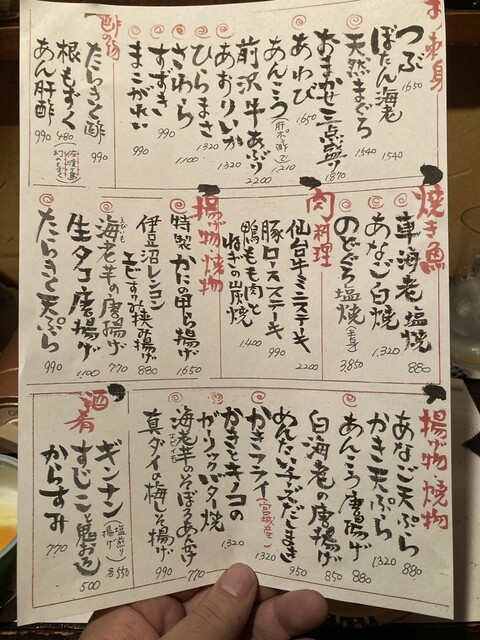 お刺身
つぶ 1650
ぼたん海老 1540
天然まぐろ 1540
おまかせ三点盛り 1870
あわび 1650
あんこう(肝ポン酢で) 1,210
前沢牛あぶり 2200
あおりいか 1320
ひらまさ 1320
さわら 1,100
すずき 990
まこがれい 990
酢の物
たらきく酢 990
根もずく 480
あん肝酢 990
焼き魚
車海老塩焼 880
あなご白焼 1,320
のどぐろ塩焼(半身) 3,850
肉料理
仙台牛ミニステーキ 2200
豚ロースステーキ 990
鴨もも肉とねぎの炭焼 1,400
揚げ物・焼物
特製かにの甲ら揚げ 1,650
伊豆沼レンコンエビすりみ挟み揚げ 880
海老芋の唐揚げ 770
生タコ唐揚げ 1,100
たらきく天ぷら 990
揚げ物・焼物
あなご天ぷら 880
かき天ぷら
あんこう唐揚げ 880
白海老の唐揚げ 850
めんたいチーズだしまき 950
かきフライ(宮城産) 1320
かきとキノコのガーリックバター焼 1,320
海老芋のそぼろあんかけ 770
真ダイの梅しそ揚げ 990
酒肴
ギンナン(塩煎り 揚げ) 各550
すじこと鬼おろし 500
からすみ 770